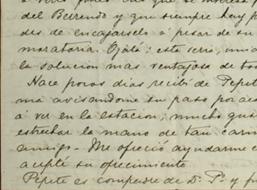 del Berrendo y que siempre hay p
des de encajarselo à pesar de su
moratoria. Ojalá: esta seria, una
la solucion mas ventajosa de to
Hace pocos dias recibi de Pepit
ma avisandome su paso por
à ver en la estacion; mucho gus
estrechar la mano de tan cari
amigo.- Me ofreció ayudarme
acepté su ofrecimiento
Pepite es compadre de Dn. Po y